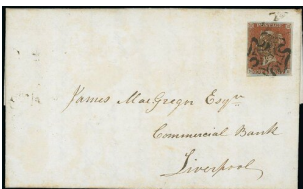 James MacGregor Esqre
Commercial Bank
Liverpool